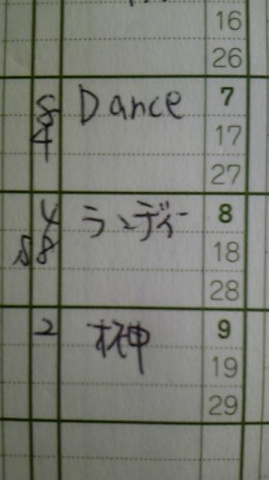 16
26
Dance 7
17
27
4 ランディー 8
18
28
2 9
19
29